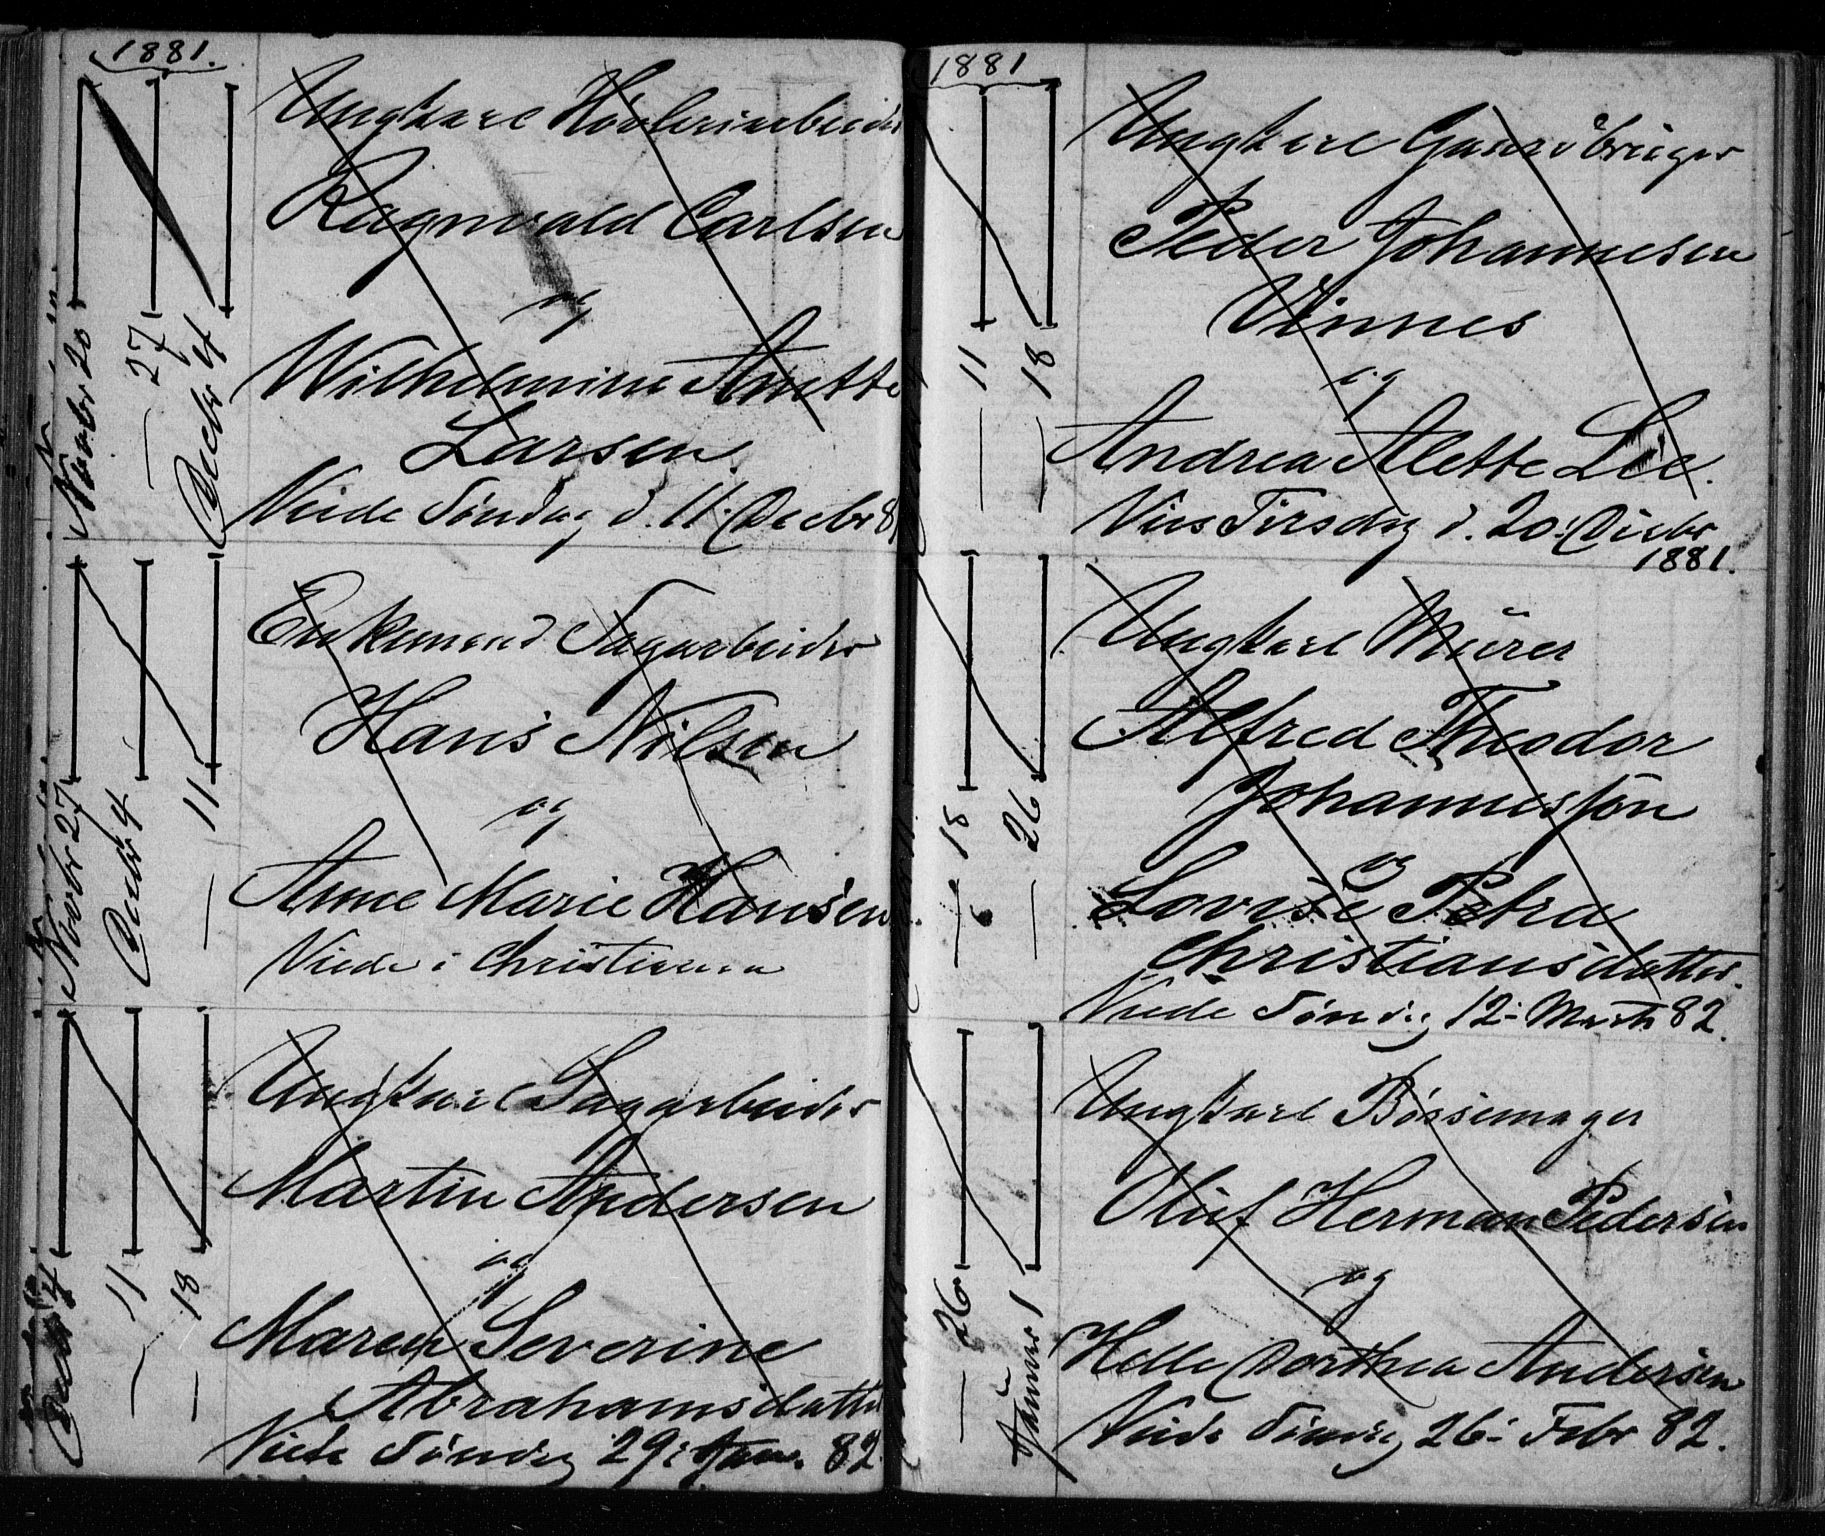 1881.
Novbr 20
— 27
Decbr 4
Ungkarl Høvleriarbeider
Ragnvald Carlsen
og
Wilhelmine Anette
Larsen.
Viede Søndag d. 11. Decbr 8
Novbr 27
Decbr 4
— 11
Enkemand Sagarbeider
Hans Nilsen
og
Anne Marie Hansen
Viede i Christiania
Decbr 4
— 11
— 18
Ungkarl Sagarbeider
Martin Andersen
og
Maren Severine
Abrahamsdatter
Viede Søndag 29: Jan. 82
1881
— 11
— 18
Ungkarl Gaardbruger
Peder Johannesen
Vinnes
og
Andrea Alette Lie.
Vies Tirsdag d. 20: Decbr
1881.
— 18
— 26
Ungkarl Murer
Alfred Theodor
Johannesson
og
Lovise Petra
Christiansdatter.
Viede Søndag 12: Marts 82.
— 26
Januar 1
Ungkarl Bøssemager
Oluf Herman Pedersen
og
Helle Dorthea Andersen
Viede Søndag 26: Febr 82.